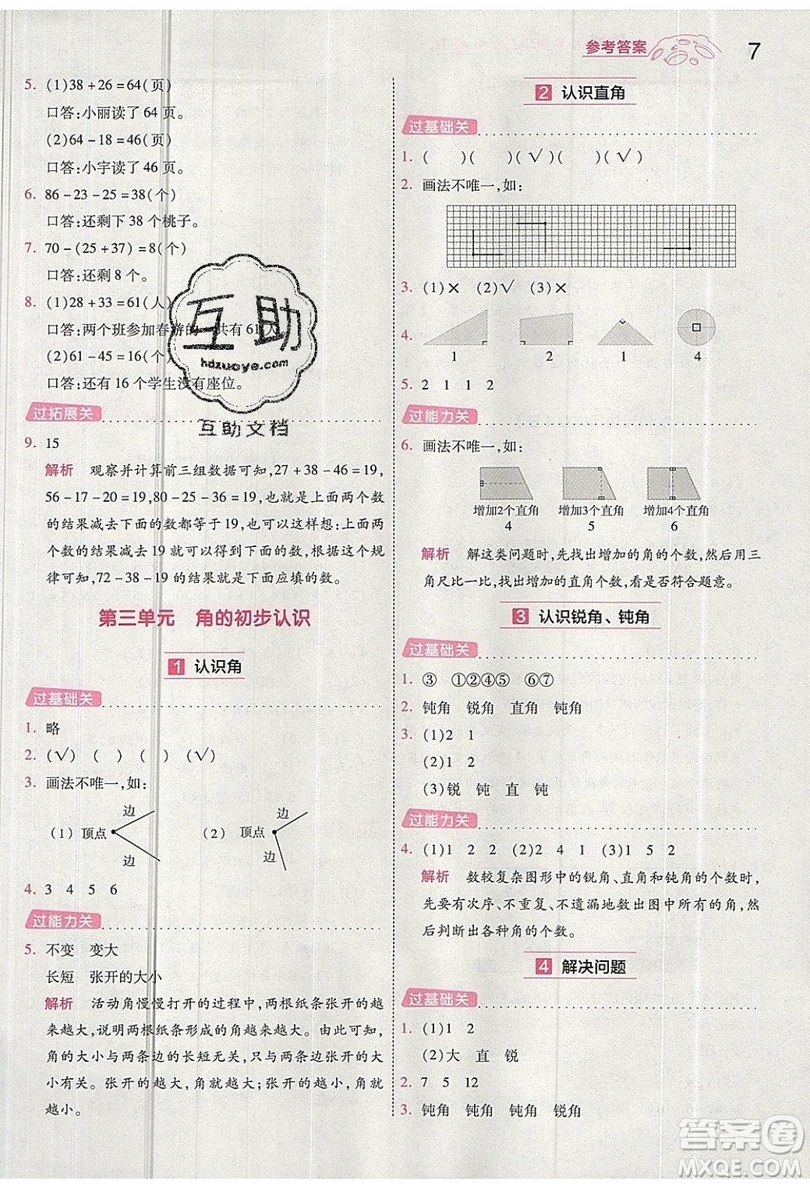 参考答案
7
5. (1)38+26=64(页)
口答:小丽读了 64 页。
(2)64-18=46(页)
口答:小宇读了 46 页。
6. 86-23-25=38(个)
口答:还剩下 38 个桃子。
7. 70-(25+37)=8(个)
口答:还剩 8 个。
8. (1)28+33=61(人)
口答:两个班参加春游的一共有 61 人。
(2)61-45=16(个)
口答:还有 16 个学生没有座位。
过拓展关
9. 15
解析 观察并计算前三组数据可知,27+38-46=19,
56-17-20=19,80-25-36=19,也就是上面两个数
的结果减去下面的数都等于19,也可以这样想:上面
两个数的结果减19,可以得到下面的数,根据这个规
律可知,72-38-19的结果就是下面应填的数。
第三单元 角的初步认识
1 认识角
过基础关
1. 略
2. (√) ( ) ( ) (√)
3. 画法不唯一,如:
(1) 顶点 边 边
(2) 顶点 边 边
4. 3 4 5 6
过能力关
5. 不变 变大
长短 张开的大小
解析 活动角慢慢打开的过程中,两根纸条张开的越
来越大,说明两根纸条形成的角越来越大。由此可知,
角的大小与两条边的长短无关,只与两条边张开的大
小有关。张开的越大,角就越大;张开的越小,角就
越小。
2 认识直角
过基础关
1. ( ) ( ) (√) ( ) (√)
2. 画法不唯一,如:
3. (1)× (2)√ (3)×
4.
1 2 1 4
5. 2 1 1 2
过能力关
6. 画法不唯一,如:
增加2个直角 增加3个直角 增加4个直角
4 5 6
解析 解这类问题时,先找出增加的角的个数,然后用三
角尺比一比,找出增加的直角个数,看是否符合题意。
3 认识锐角、钝角
过基础关
1. ③ ①②④⑤ ⑥⑦
2. 钝角 锐角 直角 钝角
3. (1)2 1
(2)1 2
(3)锐 钝 直 钝
过能力关
4. (1)1 2 2 (2)2 4 1 (3)1 5 2
解析 数较复杂图形中的锐角、直角和钝角的个数时,
先要有次序、不重复、不遗漏地数出图形中所有的角,然
后判断出各种角的个数。
4 解决问题
过基础关
1. (1)1 2
(2)大 直 锐
2. 7 5 12
3. 钝角 钝角 钝角 锐角
互助
hdzuoye.com
互助文档
答案圈
MXQE.COM